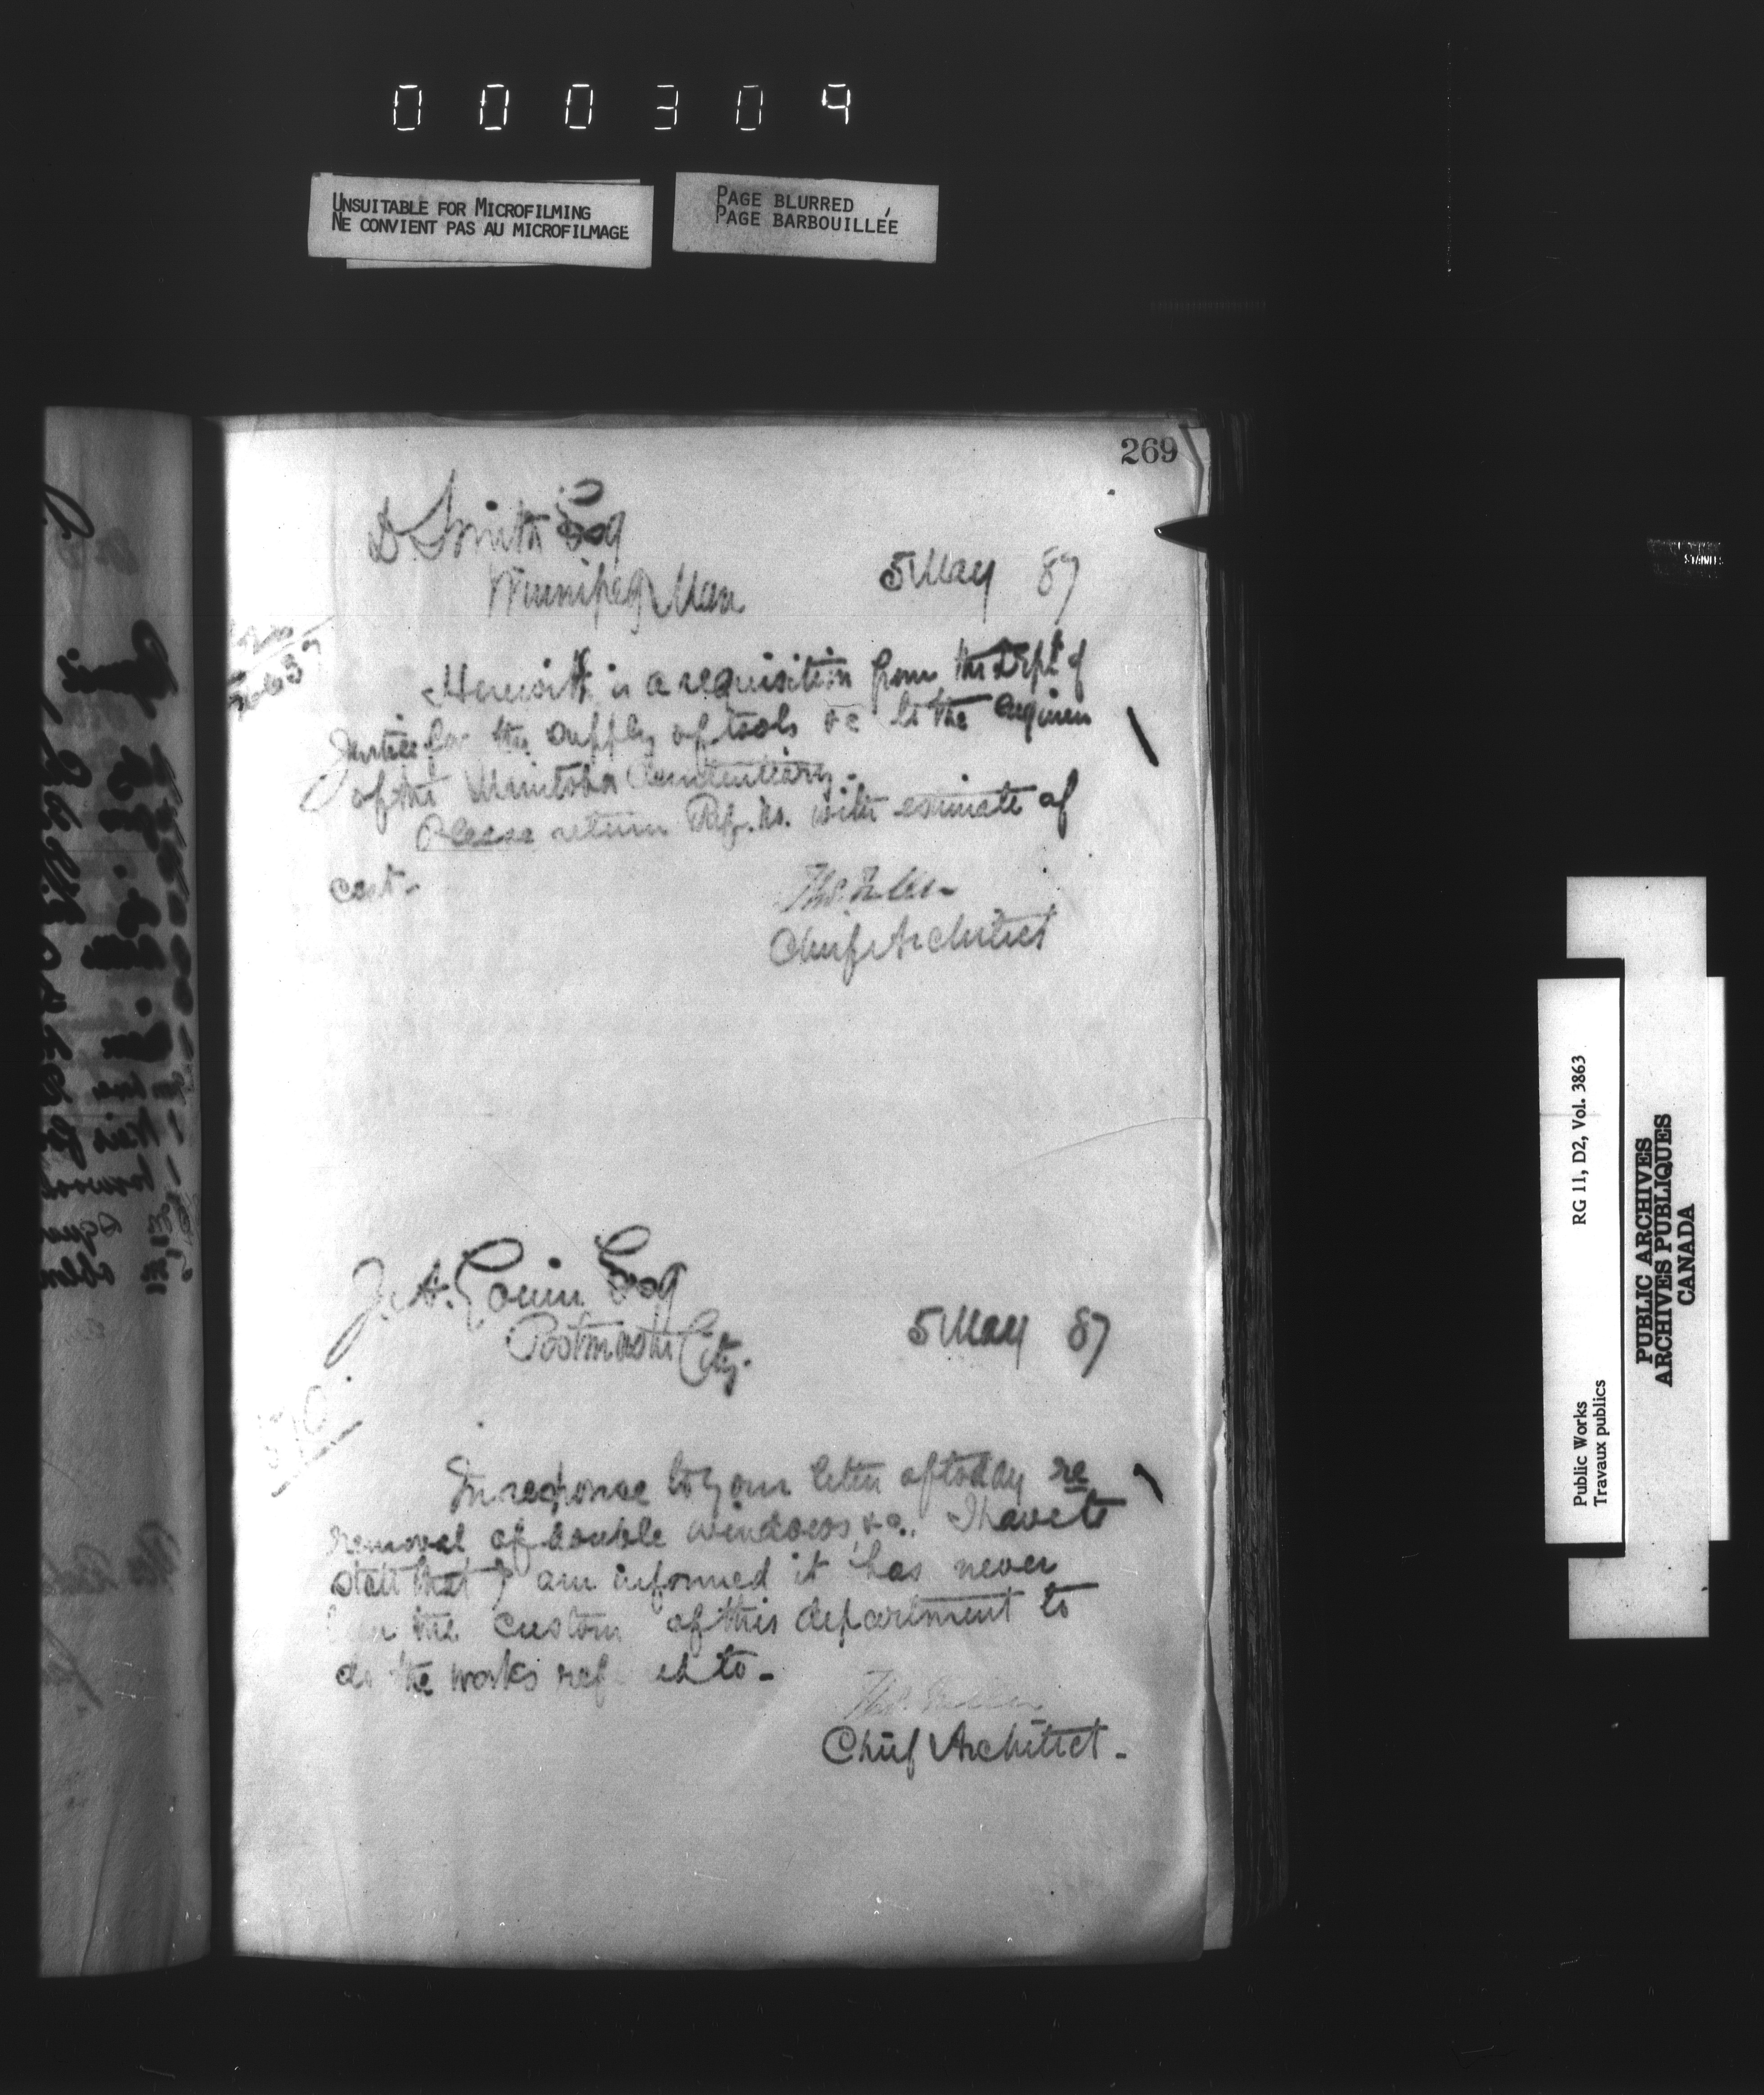 000304
UNSUITABLE FOR MICROFILMING
NE CONVIENT PAS AU MICROFILMAGE
PAGE BLURRED
PAGE BARBOUILLÉE
269
D. Smith Esq
Winnipeg Man
5 May 87
Herewith is a requisition from the Dept of
Justice for the supply of tools &c to the Engineer
of the Manitoba Penitentiary.
Please return Ref. No. with estimate of
cost-
Thos. Fuller
Chief Architect
J. A. Gouin Esq
Postmaster City.
5 May 87
In response to your letter of today re
removal of double windows, &c., I have to
state that I am informed it has never
the custom of this department to
do the works ref ed to-
Thos. Fuller
Chief Architect-
RG 11, D2, Vol. 3863
Public Works
Travaux publics
PUBLIC ARCHIVES
ARCHIVES PUBLIQUES
CANADA